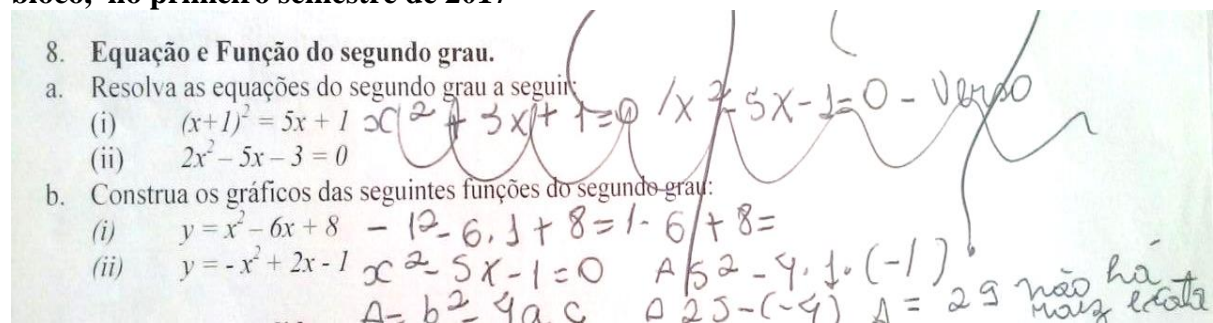 bloco, no primeiro semestre de 2017
8. Equação e Função do segundo grau.
a. Resolva as equações do segundo grau a seguir:
(i) (x+1)² = 5x + 1 x² + 3x + 1 = 0 / x² - 5x - 1 = 0 - Verso
(ii) 2x² – 5x – 3 = 0
b. Construa os gráficos das seguintes funções do segundo grau:
(i) y = x² – 6x + 8 - 1² - 6.1 + 8 = 1 - 6 + 8 =
(ii) y = - x² + 2x - 1 x² - 5x - 1 = 0 Δ 5² - 4.1.(-1)
Δ = b² - 4a.c Δ 25 - (-4) Δ = 29 não há
mais exata